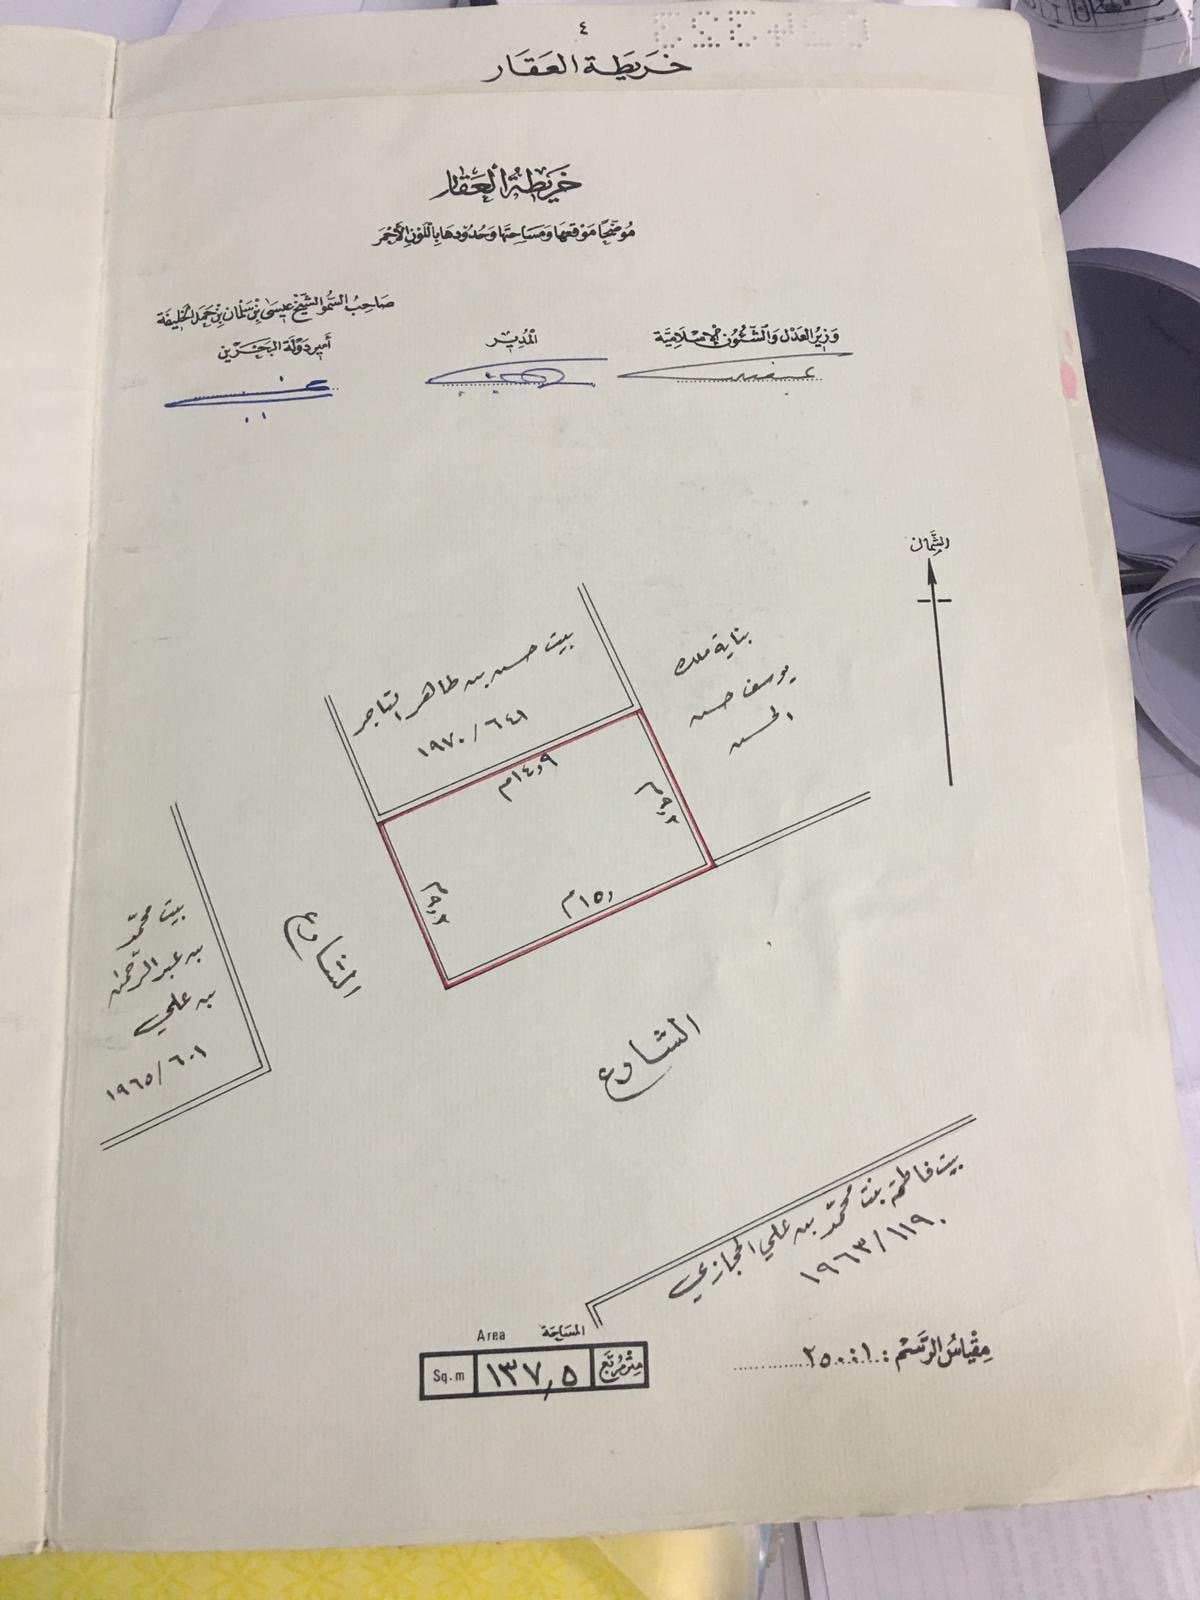 ٤
خريطة العقار
خريطة العقار
موضحاً موقعها ومساحتها وحدودها باللون الأحمر
صاحب السمو الشيخ عيسى بن سلمان بن حمد الخليفة
أمير دولة البحرين
المدير
وزير العدل والشئون الإسلامية
الشمال
بيت حسن بن طاهر التاجر
١٩٧٠/٦٤١
بناية ملك
يوسف حسن
١٤٫٩م
٩٫٢م
٩٫٢م
١٥٫م
الشارع
الشارع
بيت محمّد
بن عبد الرحمن
بن علي
١٩٦٥/٦٠١
بيت فاطمة بنت محمّد بن علي الحجازي
١٩٦٣/١١٩٠
مقياس الرسم: ١:٢٥٠
المساحة Area
متر مربع ١٣٧٫٥ Sq.m